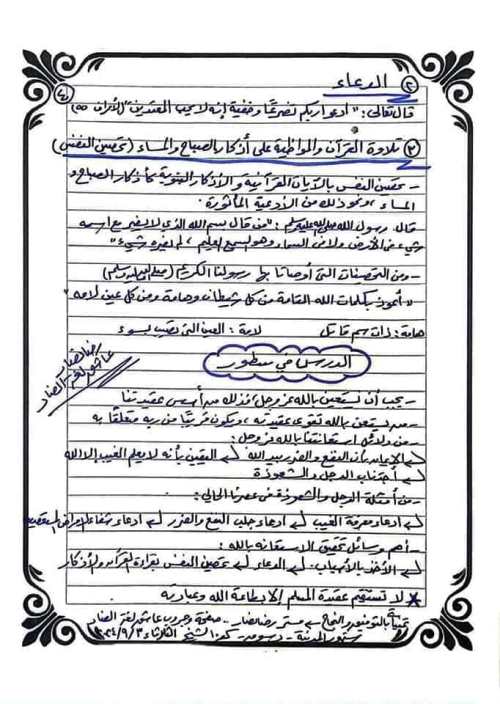 ② الدعاء
٤
قال تعالى: "ادعوا ربكم تضرعًا وخفية إنه لا يحب المعتدين" (الأعراف ٥٥)
③ تلاوة القرآن والمواظبة على أذكار الصباح والمساء (تحصين النفس)
- تحصين النفس بالآيات القرآنية والأذكار النبوية كأذكار الصباح و
المساء، ونحو ذلك من الأدعية المأثورة.
قال رسول الله صلى الله عليه وسلم: "من قال بسم الله الذي لا يضر مع اسمه
شيء في الأرض ولا في السماء وهو السميع العليم، لم يضره شيء"
- ومن التحصينات التي أوصانا بها رسولنا الكريم (صلى الله عليه وسلم)
"أعوذ بكلمات الله التامة من كل شيطان وهامة ومن كل عين لامة"
هامة: ذات سم قاتل لامة: العين التي تصيب بسوء
الدرس في سطور
رضا نصار
عاشق لغة الضاد
- يجب أن نستعين بالله عز وجل، فذلك من أسس عقيدتنا
- من يستعن بالله تقوى عقيدته، ويكون قريبًا من ربه متعلقًا به
- من دلائل استعانتنا بالله عز وجل:
الإيمان بأن النفع والضر بيد الله اليقين بأنه لا يعلم الغيب إلا الله
اجتناب الدجل والشعوذة
- من أمثلة الدجل والشعوذة في عصرنا الحالي:
ادعاء معرفة الغيب ادعاء جلب النفع والضرر ادعاء شفاء الأمراض المستعصية
- أهم وسائل تحقيق الاستعانة بالله:
الأخذ بالأسباب. الدعاء تحصين النفس بقراءة القرآن والأذكار
* لا تستقيم عقيدة المسلم إلا بطاعة الله وعبادته
تمنياتي بالتوفيق والنجاح مستر رضا نصار - صفحة وجروب عاشق لغة الضاد
الثلاثاء ٢٠٢٤/٩/٣